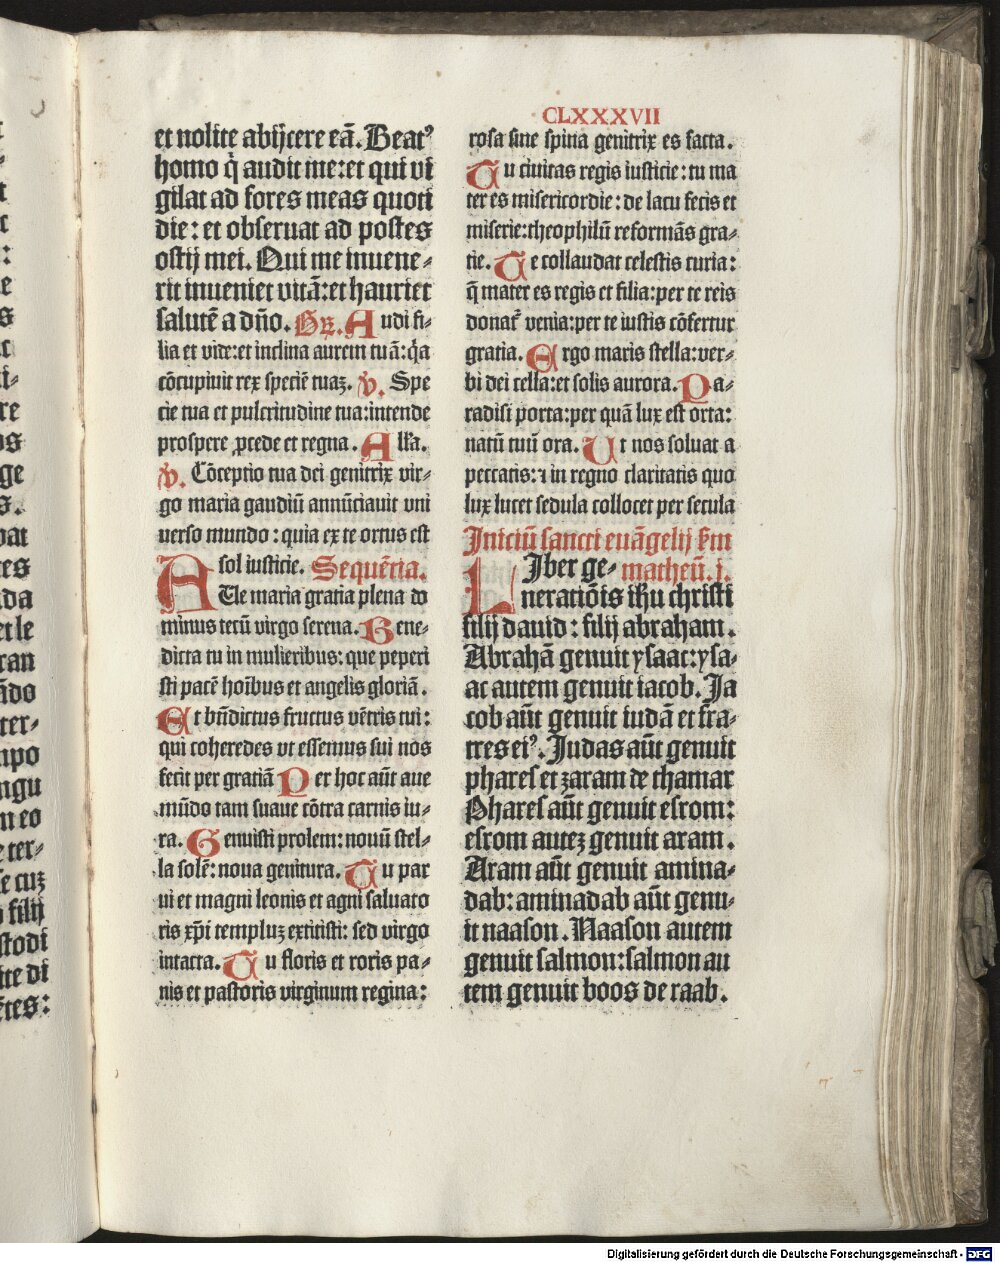 CLXXXVII
et nolite abijcere eã. Beatꝰ
homo q̃ audit me: et qui vi
gilat ad fores meas quoti
die: et obseruat ad postes
ostij mei. Qui me inuene⸗
rit inueniet vitã: et hauriet
salutẽ a dño. Gr̃. Audi fi⸗
lia et vide: et inclina aurem tuã: q̃a
cõcupiuit rex speciẽ tuaz. v̉. Spe
cie tua et pulcritudine tua: intende
prospere ꝓcede et regna. All'a.
v̉. Cõceptio tua dei genitrix vir⸗
go maria gaudiũ annũciauit vni
uerso mundo: quia ex te ortus est
sol iusticie. Sequẽtia.
AUe maria gratia plena do
minus tecũ virgo serena. Bene⸗
dicta tu in mulieribus: que peperi
sti pacẽ hoĩbus et angelis gloriã.
Et bñdictus fructus vẽtris tui:
qui coheredes vt essemus sui nos
fecit per gratiã Per hoc aũt aue
mũdo tam suaue cõtra carnis iu⸗
ra. Genuisti prolem: nouũ stel⸗
la solẽ: noua genitura. Tu par
ui et magni leonis et agni saluato
ris xp̃i templuz extitisti: sed virgo
intacta. Tu floris et roris pa⸗
nis et pastoris virginum regina:
rosa sine spina genitrix es facta.
Tu ciuitas regis iusticie: tu ma
ter es misericordie: de lacu fecis et
miserie: theophilũ reformãs gra⸗
tie. Te collaudat celestis curia:
q̃ mater es regis et filia: per te reis
donat᷑ venia: per te iustis cõfertur
gratia. Ergo maris stella: ver⸗
bi dei cella: et solis aurora. Pa⸗
radisi porta: per quã lux est orta:
natũ tuũ ora. Ut nos soluat a
peccatis: ⁊ in regno claritatis quo
lux lucet sedula collocet per secula
Iniciũ sancti euãgelij s̃m
LIber ge⸗ matheũ. j.
neratiõis ih̃u christi
filij dauid: filij abraham.
Abrahã genuit ysaac: ysa⸗
ac autem genuit iacob. Ja
cob aũt genuit iudã et fra⸗
tres eiꝰ. Judas aũt genuit
phares et zaram de thamar
Phares aũt genuit esrom:
esrom autez genuit aram.
Aram aũt genuit amina⸗
dab: aminadab aũt genu⸗
it naason. Naason autem
genuit salmon: salmon au
tem genuit boos de raab.
Digitalisierung gefördert durch die Deutsche Forschungsgemeinschaft - DFG